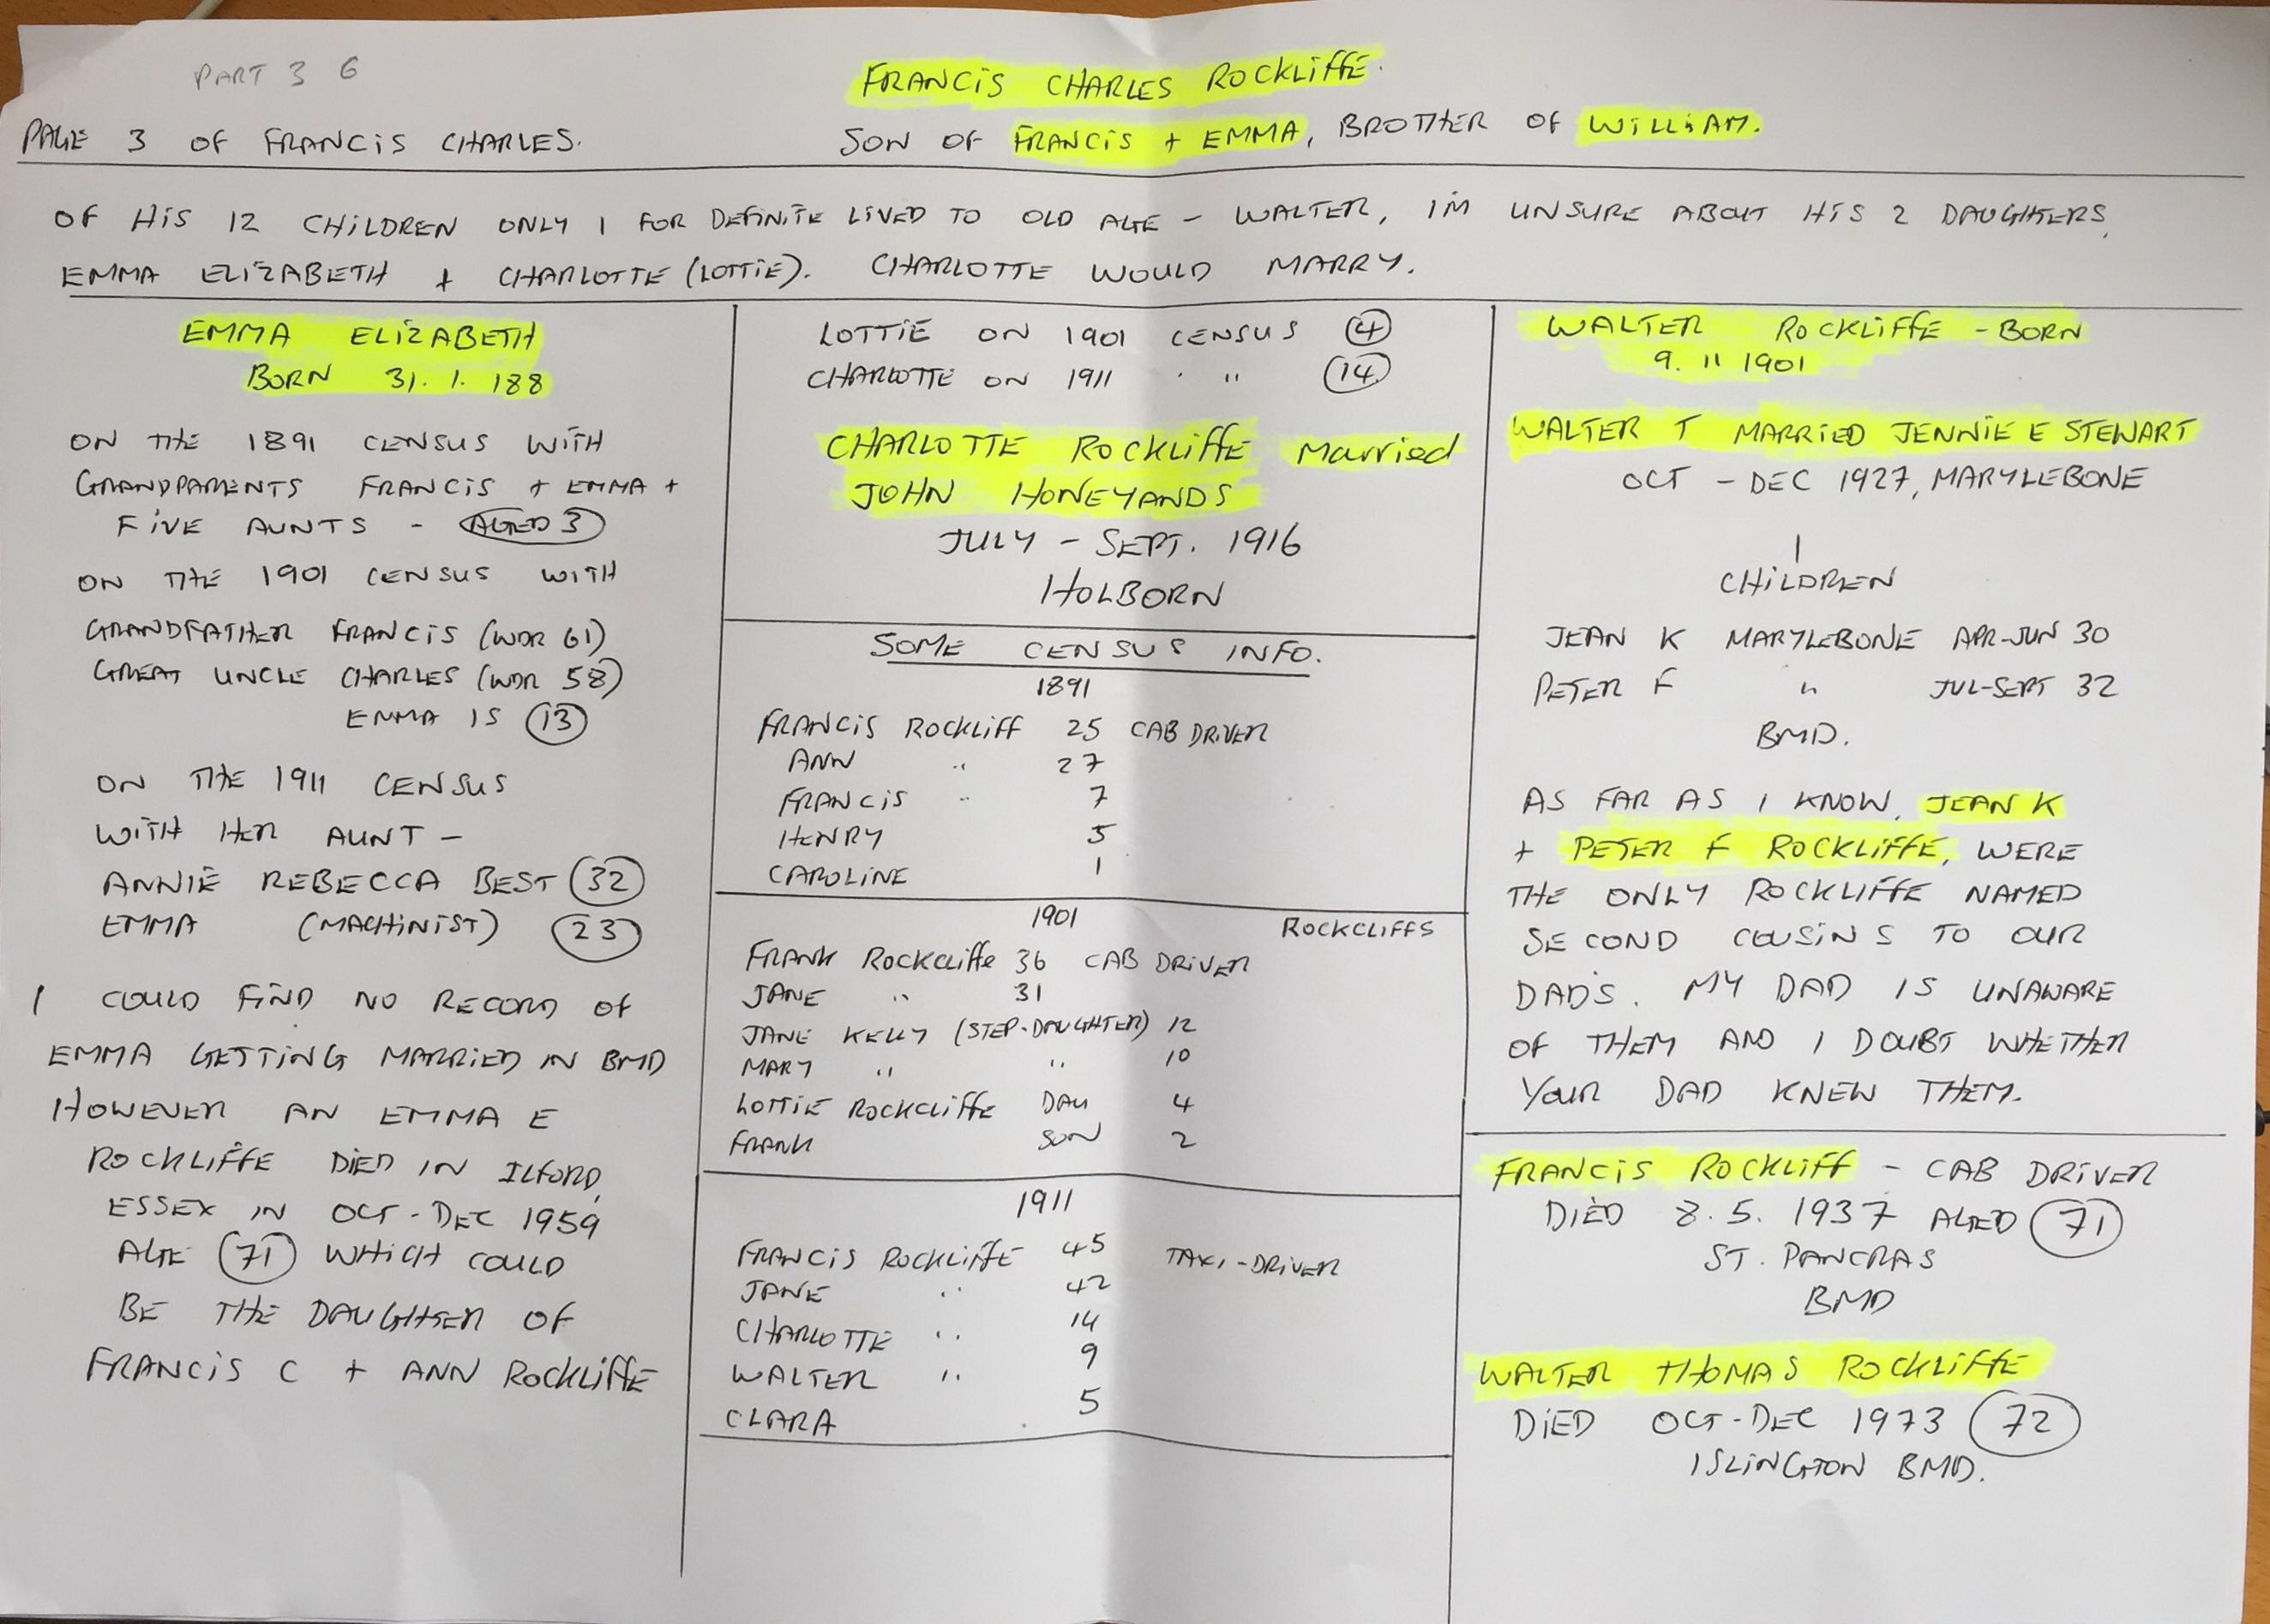 PART 3 6
FRANCIS CHARLES ROCKLIFFE.
PAGE 3 OF FRANCIS CHARLES.
SON OF FRANCIS + EMMA, BROTHER OF WILLIAM.
OF HIS 12 CHILDREN ONLY 1 FOR DEFINITE LIVED TO OLD AGE - WALTER, IM UNSURE ABOUT HIS 2 DAUGHTERS,
EMMA ELIZABETH + CHARLOTTE (LOTTIE). CHARLOTTE WOULD MARRY.
EMMA ELIZABETH
BORN 31. 1. 188
ON THE 1891 CENSUS WITH
GRANDPARENTS FRANCIS + EMMA +
FIVE AUNTS - AGED 3
ON THE 1901 CENSUS WITH
GRANDFATHER FRANCIS (WDR 61)
GREAT UNCLE CHARLES (WDR 58)
EMMA IS 13
ON THE 1911 CENSUS
WITH HER AUNT -
ANNIE REBECCA BEST 32
EMMA (MACHINIST) 23
I COULD FIND NO RECORD OF
EMMA GETTING MARRIED IN BMD
HOWEVER AN EMMA E
ROCKLIFFE DIED IN ILFORD,
ESSEX IN OCT - DEC 1959
AGE 71 WHICH COULD
BE THE DAUGHTER OF
FRANCIS C + ANN ROCKLIFFE
LOTTIE ON 1901 CENSUS 4
CHARLOTTE ON 1911 " " 14
CHARLOTTE ROCKLIFFE Married
JOHN HONEYANDS
JULY - SEPT. 1916
HOLBORN
SOME CENSUS INFO.
1891
FRANCIS ROCKLIFF 25 CAB DRIVER
ANN " 27
FRANCIS " 7
HENRY 5
CAROLINE 1
1901 ROCKCLIFFS
FRANK ROCKCLIFFE 36 CAB DRIVER
JANE " 31
JANE KELLY (STEP-DAUGHTER) 12
MARY " " 10
LOTTIE ROCKCLIFFE DAU 4
FRANK SON 2
1911
FRANCIS ROCKLIFFE 45 TAXI-DRIVER
JANE " 42
CHARLOTTE " 14
WALTER " 9
CLARA 5
WALTER ROCKLIFFE - BORN
9. 11 1901
WALTER T MARRIED JENNIE E STEWART
OCT - DEC 1927, MARYLEBONE
CHILDREN
JEAN K MARYLEBONE APR-JUN 30
PETER F " JUL-SEPT 32
BMD.
AS FAR AS I KNOW, JEAN K
+ PETER F ROCKLIFFE, WERE
THE ONLY ROCKLIFFE NAMED
SECOND COUSINS TO OUR
DADS. MY DAD IS UNAWARE
OF THEM AND I DOUBT WHETHER
YOUR DAD KNEW THEM.
FRANCIS ROCKLIFF - CAB DRIVER
DIED 8. 5. 1937 AGED 71
ST. PANCRAS
BMD
WALTER THOMAS ROCKLIFFE
DIED OCT-DEC 1973 72
ISLINGTON BMD.